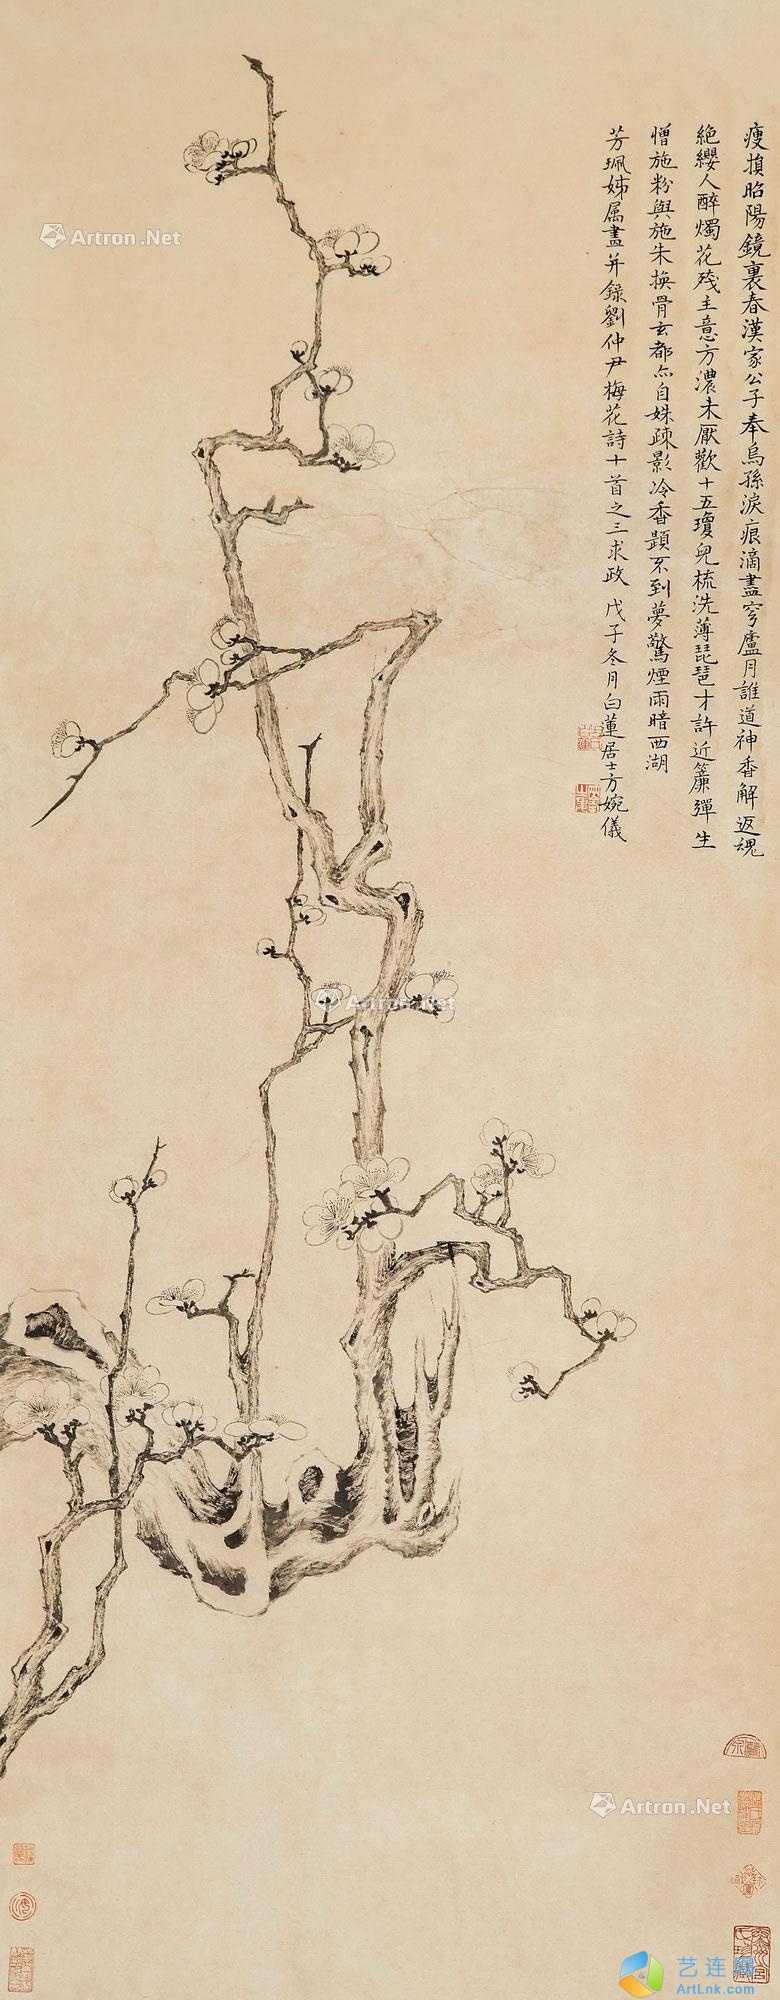 瘦損昭陽鏡裏春漢家公子奉烏孫淚痕滴盡穹廬月誰道神香解返魂
絶纓人醉燭花殘主意方濃未厭歡十五瓊兒梳洗薄琵琶才許近簾彈生
憎施粉與施朱換骨玄都亦自姝疎影冷香題不到夢驚煙雨暗西湖
芳珮姊属畫并錄劉仲尹梅花詩十首之三求政 戊子冬月白蓮居士方婉儀
Artron.Net
Artron.Net
Artron.Net
艺连网
ArtLnk.com